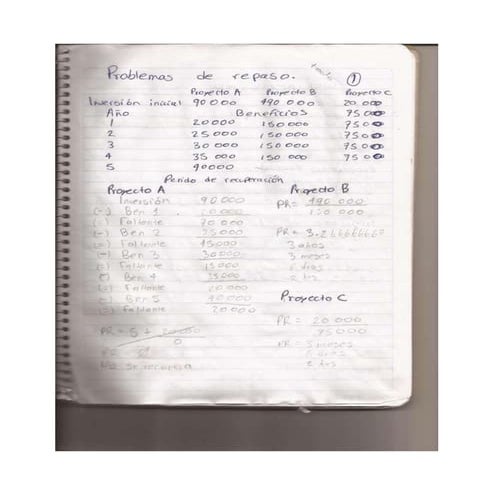 Problemas de repaso. ①
Proyecto A Proyecto B Proyecto C
Inversión inicial 90 000 490 000 20 000
Año Beneficios 75 000
1 20000 150000 75000
2 25 000 150 000 7500
3 30 000 150000 7500
4 35 000 150 000 7500
5 40000
Periodo de recuperación
Proyecto A Proyecto B
Inversión 90000
(-) Ben 1 20 000
(=) Faltante 70 000
(-) Ben 2 25000
(=) Faltante 45000
(-) Ben 3 30000
(=) Faltante 15000
(-) Ben 4
(=) Faltante
(-) Ben 5 40 000
(=) Faltante 20000
PR = 490 000
150 000
PR = 3.266666660
3 años
3 meses
6 días
Proyecto C
PR = 20 000
75000
PR = 3 meses
PR = 5 +
0
PR
No se recupera